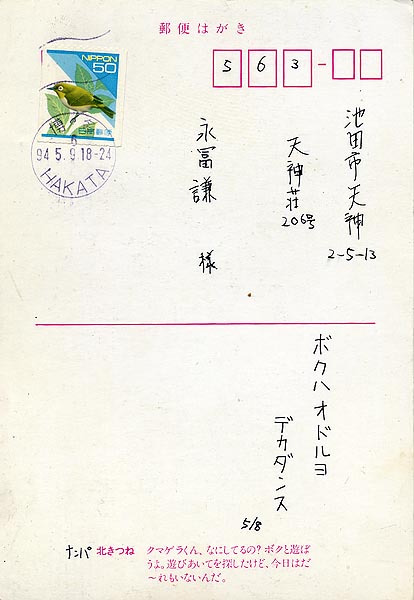 郵便はがき
563-
NIPPON
50
日本郵便
94 5.9 18-24
HAKATA
池田市天神
2-5-13
天神荘
206号
永冨謙 様
ボクハオドルヨ
デカダンス
5/8
ナンパ 北きつね
クマゲラくん、なにしてるの?ボクと遊ぼ
うよ。遊びあいてを探したけど、今日はだ
~れもいないんだ。